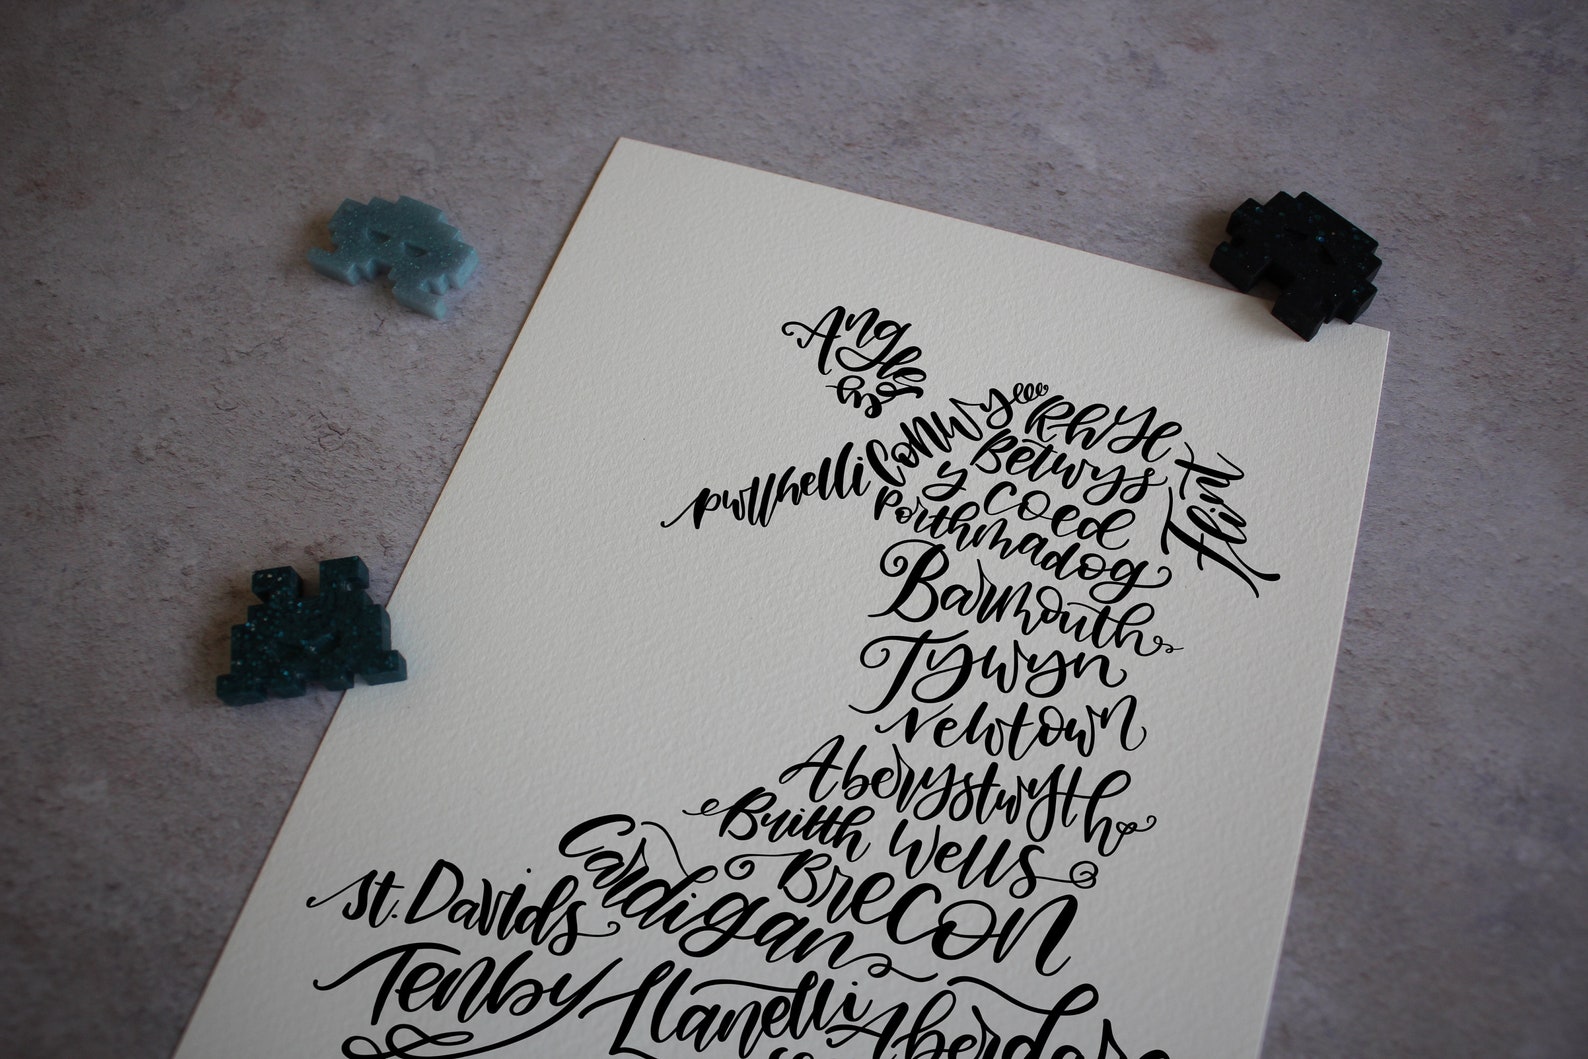 Anglesey
Conwy
Rhyl
Flint
pwllhelli
Betwys
y Coed
Porthmadog
Barmouth
Tywyn
newtown
Aberystwyth
Builth Wells
Cardigan
Brecon
St. Davids
Tenby
Llanelli
Aberdar